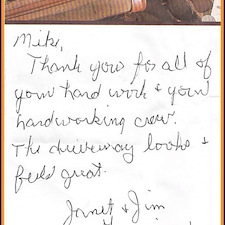 Mike,
Thank you for all of
your hard work & your
hardworking crew.
The driveway looks &
feels great.
Janet & Jim